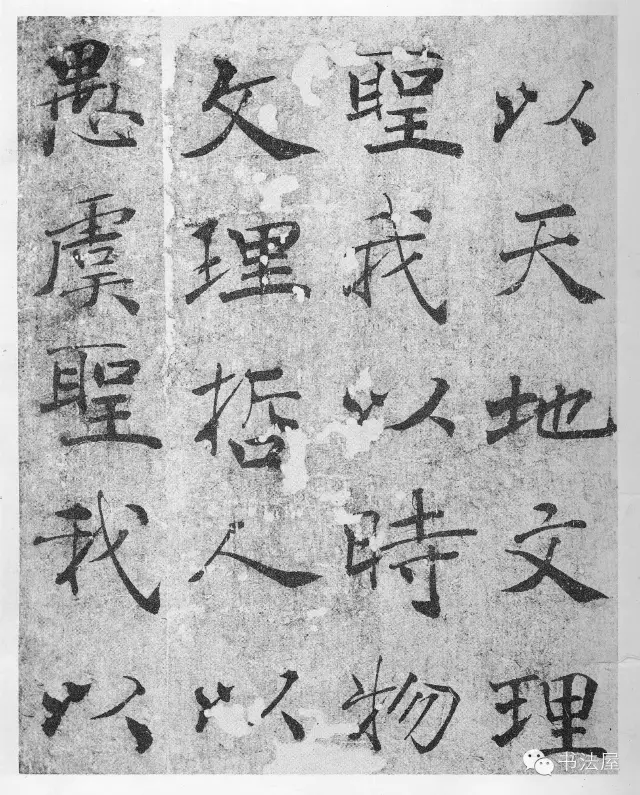 以天地文理
聖我以時物
文理哲人以
愚虞聖我以
书法屋